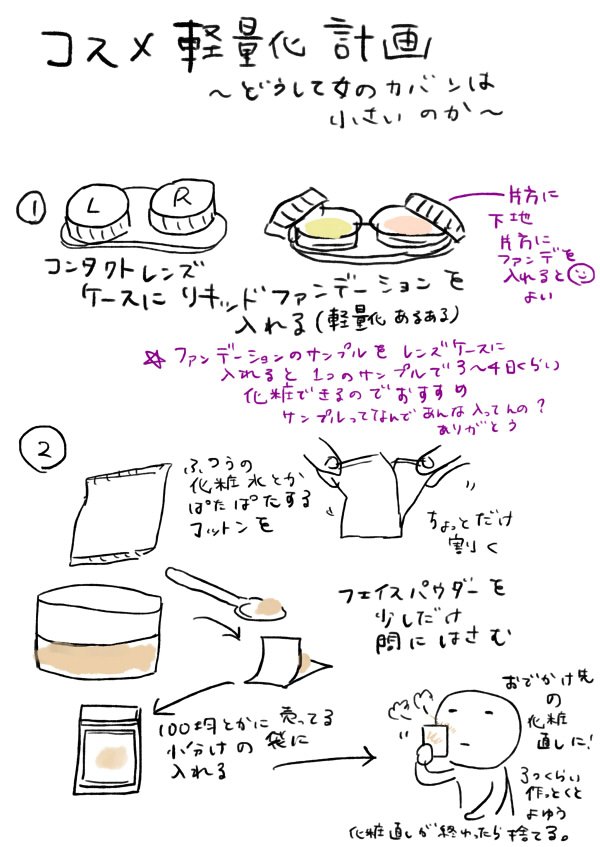 コスメ軽量化計画
～どうして女のカバンは
小さいのか～
①
L
R
コンタクトレンズ
ケースにリキッドファンデーションを
入れる(軽量化あるある)
片方に
下地
片方に
ファンデを
入れると
よい
☆ファンデーションのサンプルをレンズケースに
入れると1つのサンプルで3～4日くらい
化粧できるのでおすすめ
サンプルってなんであんな入ってんの？
ありがとう
②
ふつうの
化粧水とか
ぱたぱたする
コットンを
ちょっとだけ
割く
フェイスパウダーを
少しだけ
間にはさむ
100均とかに売ってる
小分けの袋に
入れる
おでかけ先
の
化粧
直しに!
3つくらい
作っとくと
よゆう
化粧直しが終わったら捨てる。